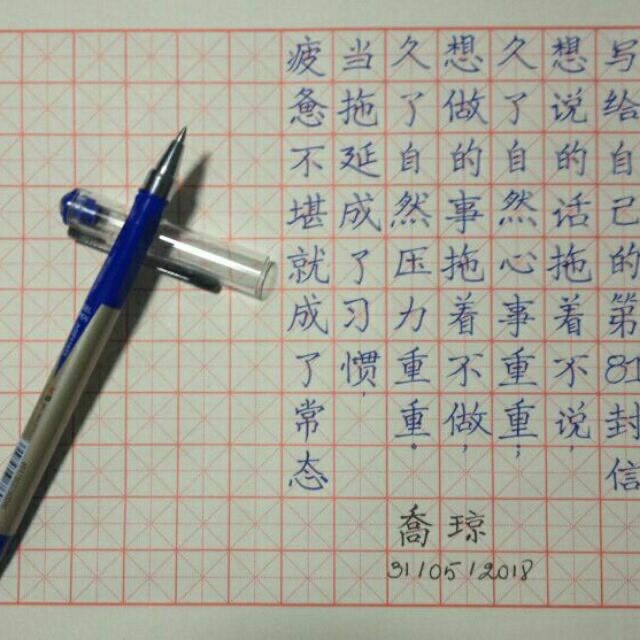 写给自己的第81封信
想说的话拖着不说,
久了自然心事重重;
想做的事拖着不做,
久了自然压力重重。
当拖延成了习惯,
疲惫不堪就成了常态
喬琼
31/05/2018